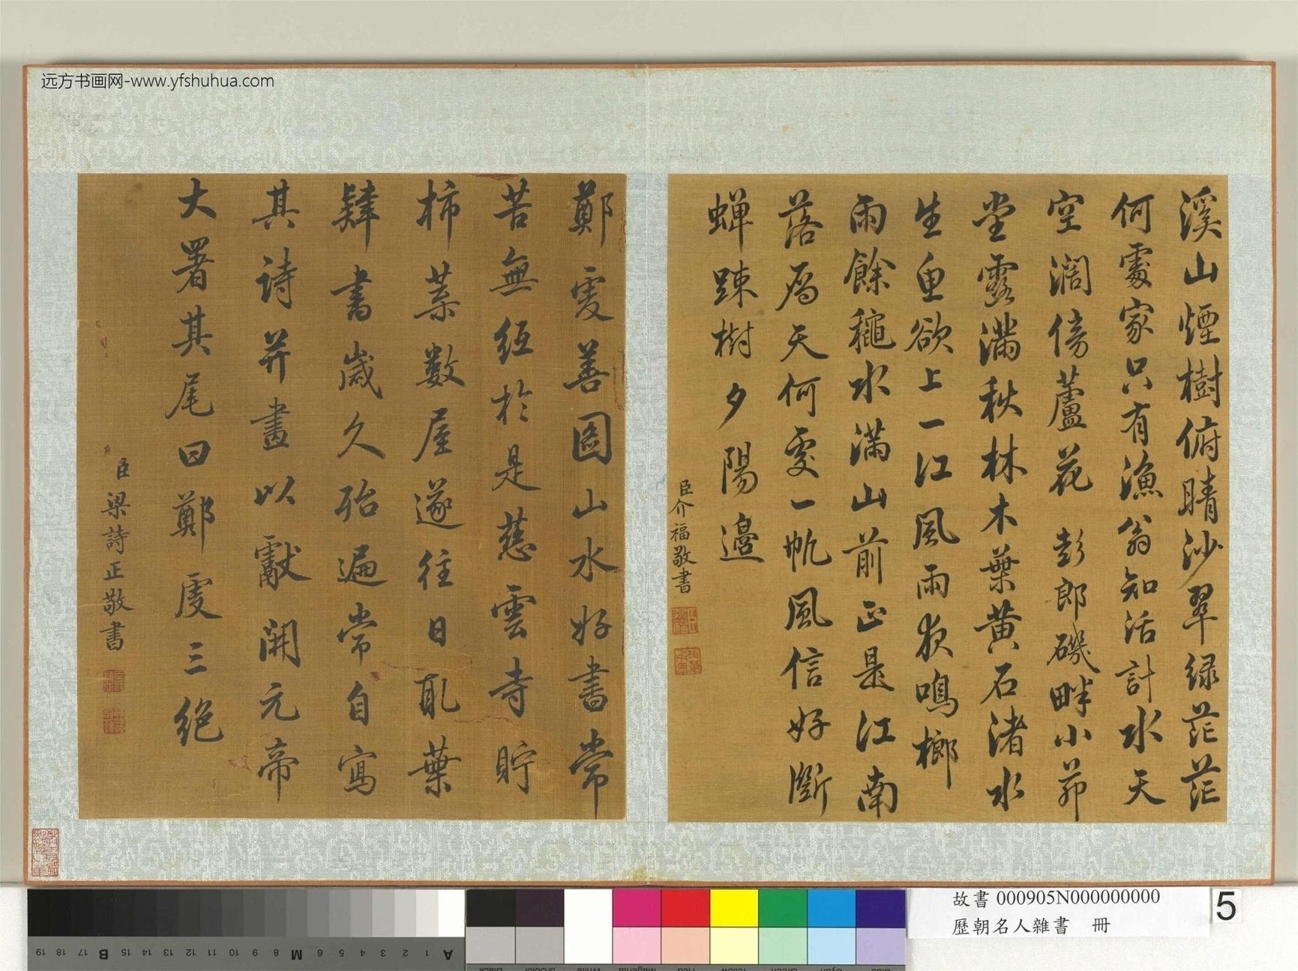 远方书画网-www.yfshuhua.com
溪山煙樹俯晴沙翠绿茫茫
何處家只有漁翁知活計水天
空濶傍蘆花 彭郎磯畔小茆
堂露滿秋林木葉黄石渚水
生魚欲上一江風雨夜鳴榔
雨餘穐水滿山前正是江南
落雁天何处一帆風信好斷
蝉踈樹夕陽邊
臣介福敬書
鄭虔善圖山水好書常
苦無紙於是慈雲寺貯
柿葉數屋遂往日取葉
肄書歲久殆遍常自寫
其詩并畫以獻開元帝
大署其尾曰鄭虔三絶
臣梁詩正敬書
故書 000905N000000000
歷朝名人雜書 冊
5
19 18 17 B 16 15 14 13 12 11 10 9 8 M 7 6 5 4 3 2 1 A